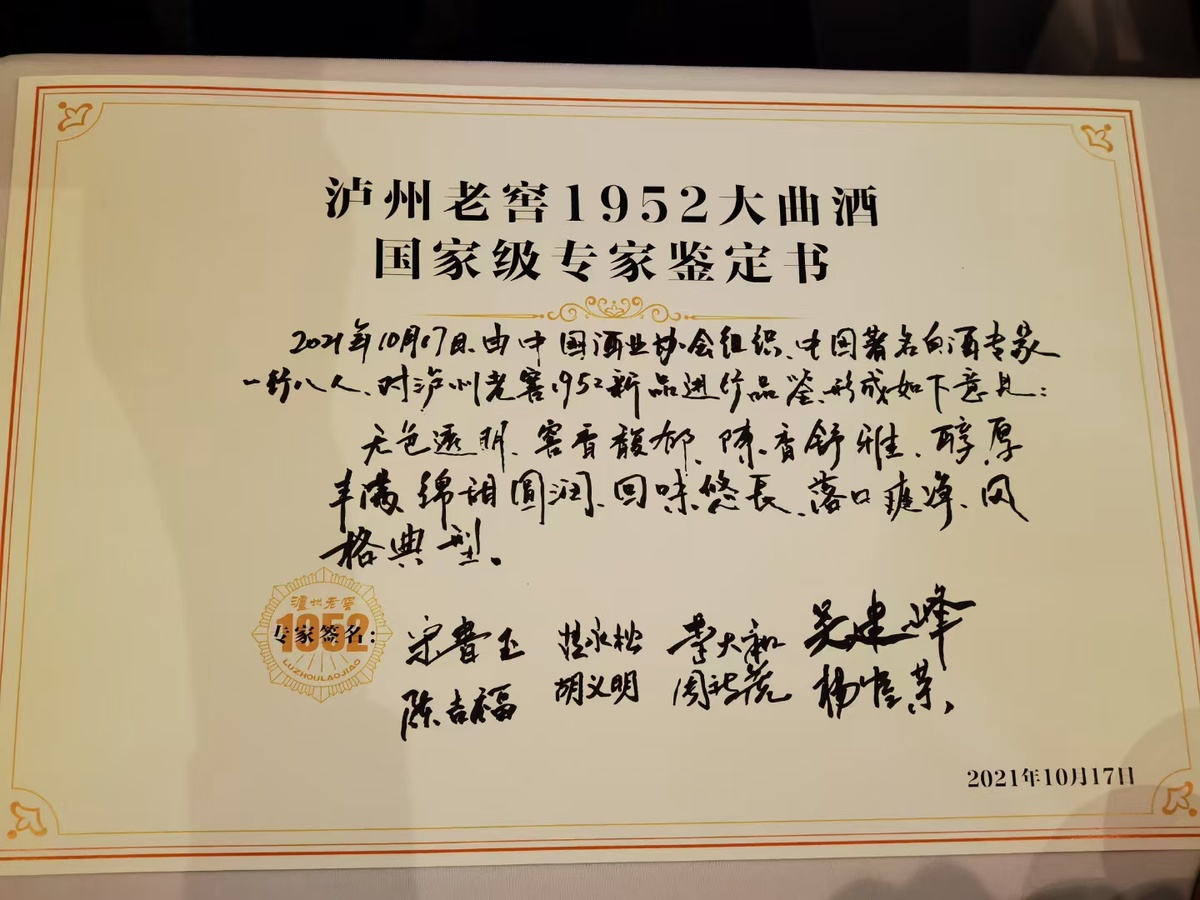 泸州老窖1952大曲酒
国家级专家鉴定书
2021年10月17日、由中国酒业协会组织、中国著名白酒专家
一行八人、对泸州老窖1952新品进行品鉴、形成如下意见：
无色透明、窖香馥郁、陈香舒雅、醇厚
丰满、绵甜圆润、回味悠長、落口爽净、风
格典型。
泸州老窖
1952
LUZHOULAOJIAO
专家签名：
宋書玉 沈永松 李大和 吴建峰
陈吉福 胡义明 杨官荣
2021年10月17日